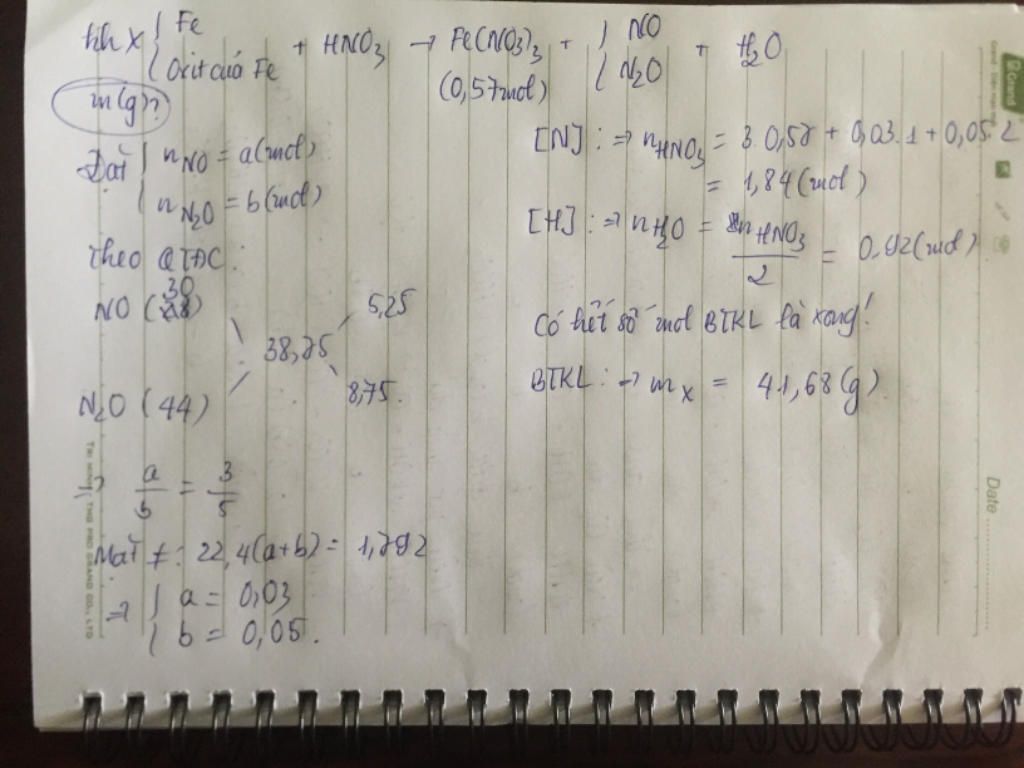 hh X { Fe
Oxit của Fe
+ HNO3 → Fe(NO3)3 + { NO
N2O
+ H2O
(0,57mol)
m(g)?
Đặt { nNO = a(mol)
nN2O = b(mol)
Theo QTĐC:
30
NO (28)
5,25
38,75
N2O (44)
8,75.
→ a/b = 3/5
Mặt ≠: 22,4(a+b) = 1,792
⇒ { a = 0,03
b = 0,05.
[N]: ⇒ nHNO3 = 3.0,57 + 0,03.1 + 0,05.2
= 1,84(mol)
[H]: ⇒ nH2O = nHNO3/2 = 0,92(mol)
Có hết số mol BTKL là xong!
BTKL: → mX = 41,68(g)
Grand
Date